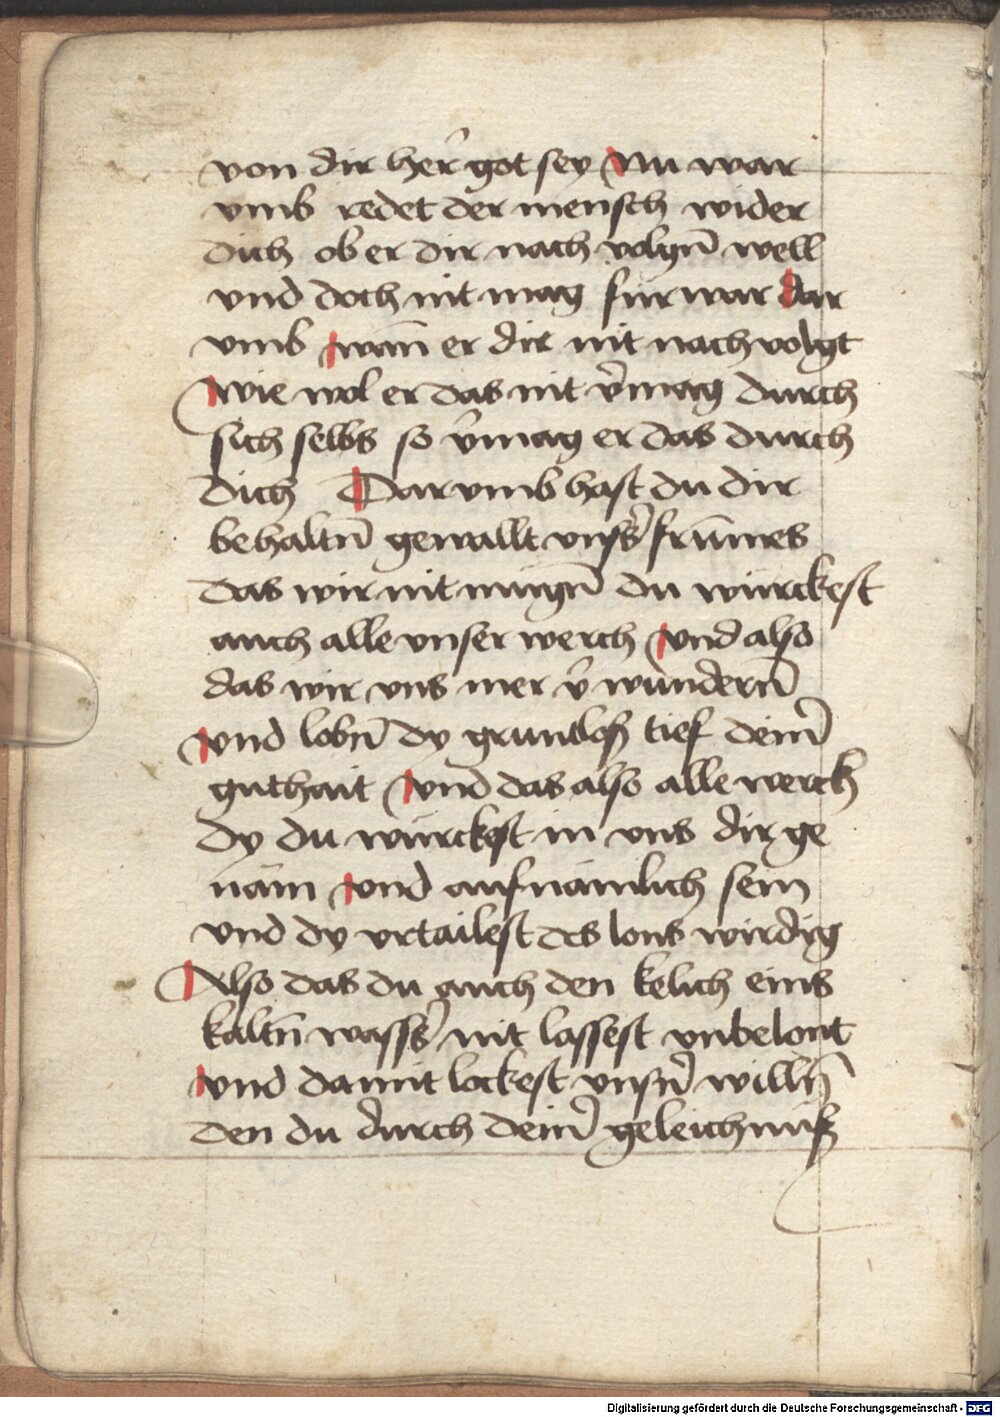 von dir her̄ got sey Nu war
vmb redet der mensch wider
dich ob er dir nach volgn̄ well
vnd doch nit mag fur war dar
vmb wan̄ er dir nit nach volgt
Wie wol er das nit v̄mag durch
sich selbs so v̄mag er das durch
dich Darvmb hast du dir
behaltn̄ gewallt vnsers frūmes
das wir nit mügn̄ du würckest
auch alle vnser werch Vnd also
das wir vns mer v̄ wundern̄
Vnd lobn̄ dy gruntlosß tief dein̄
guthait Vnd das also alle werch
dy du würckest in vns dir ge
näm vnd aufnämlich sein
vnd dy vrtailest des lons wirdig
Also das du auch den kelich eins
kaltn̄ wassers nit lassest vnbelont
Vnd damit lockest vnsn̄ willn̄
den du durch dein̄ geleichnuß
Digitalisierung gefördert durch die Deutsche Forschungsgemeinschaft - DFG